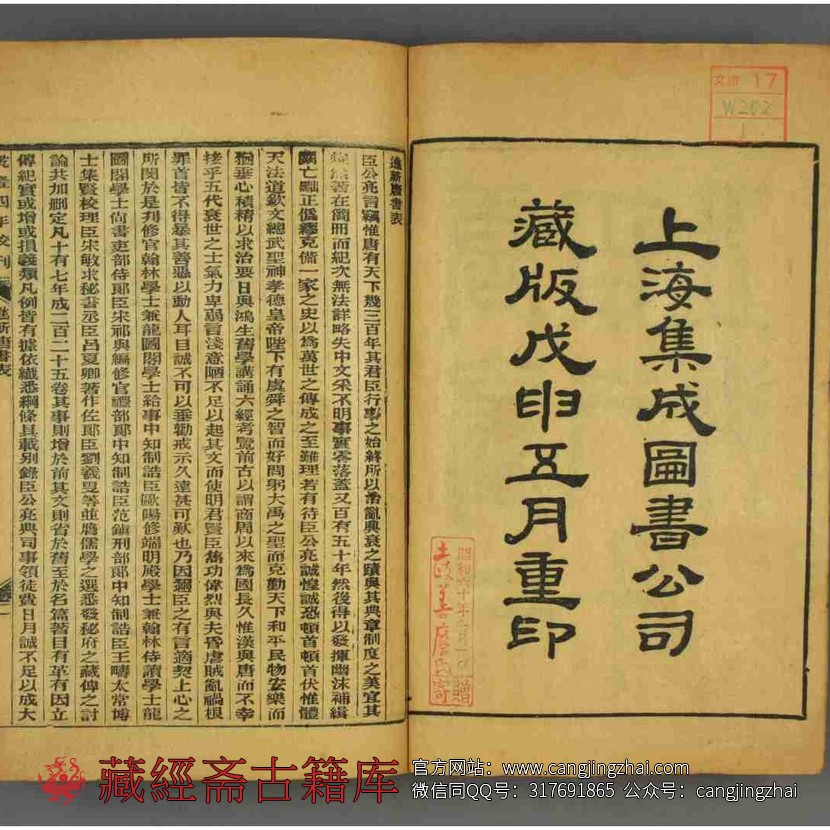 上海集成圖書公司
藏版戊申五月重印
文庫 17
W202
1
進新唐書表
臣公亮言竊惟唐有天下幾三百年其君臣行事之始終所以治亂興衰之蹟與其典章制度之美宜其
粲然著在簡冊而紀次無法詳略失中文采不明事實零落蓋又百有五十年然後得以發揮幽沬補緝
闕亡黜正僞繆克備一家之史以爲萬世之傳成之至難理若有待臣公亮誠惶誠恐頓首頓首伏惟體
天法道欽文聰武聖神孝德皇帝陛下有虞舜之智而好問躬大禹之聖而克勤天下和平民物安樂而
猶垂心積精以求治要日與鴻生舊學講誦六經考覽前古以謂商周以來爲國長久惟漢與唐而不幸
接乎五代衰世之士氣力卑弱言淺意陋不足以起其文而使明君賢臣雋功偉烈與夫昏虐賊亂禍根
罪首皆不得暴其善惡以動人耳目誠不可以垂勸戒示久遠甚可歎也乃因邇臣之有言適契上心之
所閔於是刋修官翰林學士兼龍圖閣學士給事中知制誥臣歐陽修端明殿學士兼翰林侍讀學士龍
圖閣學士尚書吏部侍郎臣宋祁與編修官禮部郎中知制誥臣范鎮刑部郎中知制誥臣王疇太常博
士集賢校理臣宋敏求秘書丞臣呂夏卿著作佐郎臣劉羲叟等並膺儒學之選悉發秘府之藏俾之討
論共加刪定凡十有七年成二百二十五卷其事則增於前其文則省於舊至於名篇著目有革有因立
傳紀實或增或損義類凡例皆有據依纖悉綱條具載別錄臣公亮典司事領徒費日月誠不足以成大
乾隆四年校刊
進新唐書表
一
藏經斋古籍库
官方网站：www.cangjingzhai.com
微信同QQ号：317691865 公众号：cangjingzhai